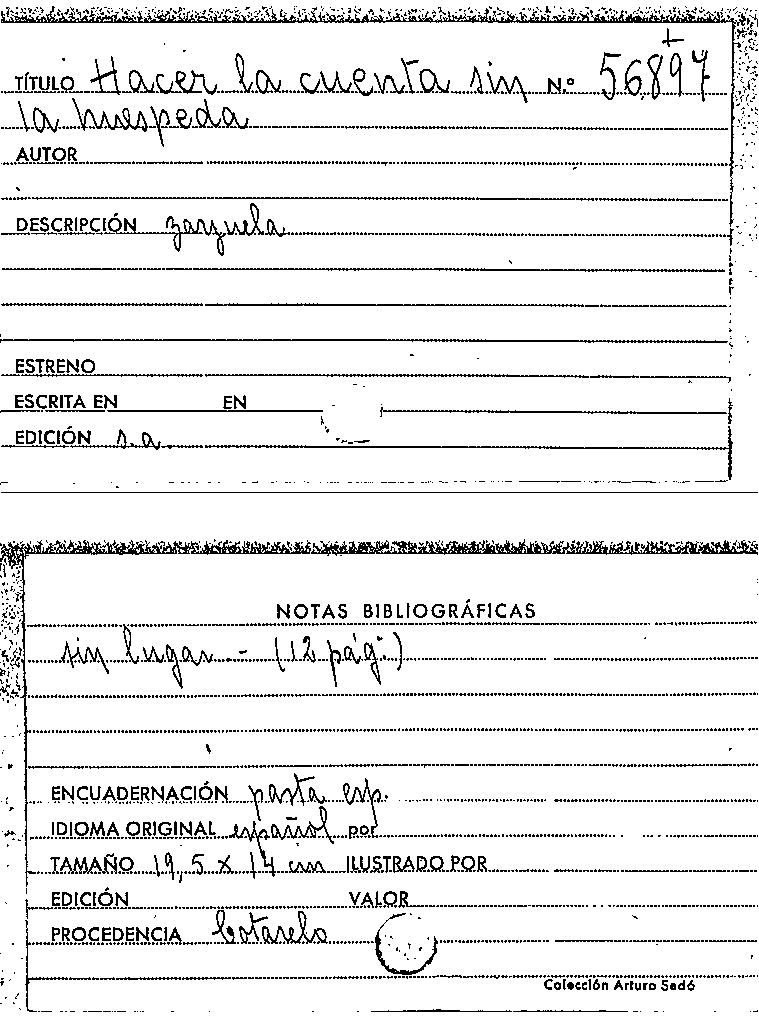 TÍTULO Hacer la cuenta sin N.º 56897
la huespeda
AUTOR
DESCRIPCIÓN zarzuela
ESTRENO
ESCRITA EN EN
EDICIÓN s.a.
NOTAS BIBLIOGRÁFICAS
sin lugar - (12 pág.)
ENCUADERNACIÓN pasta esp.
IDIOMA ORIGINAL español por
TAMAÑO 19,5 x 14 cm ILUSTRADO POR
EDICIÓN VALOR
PROCEDENCIA Cotarelo
Colección Arturo Sedó